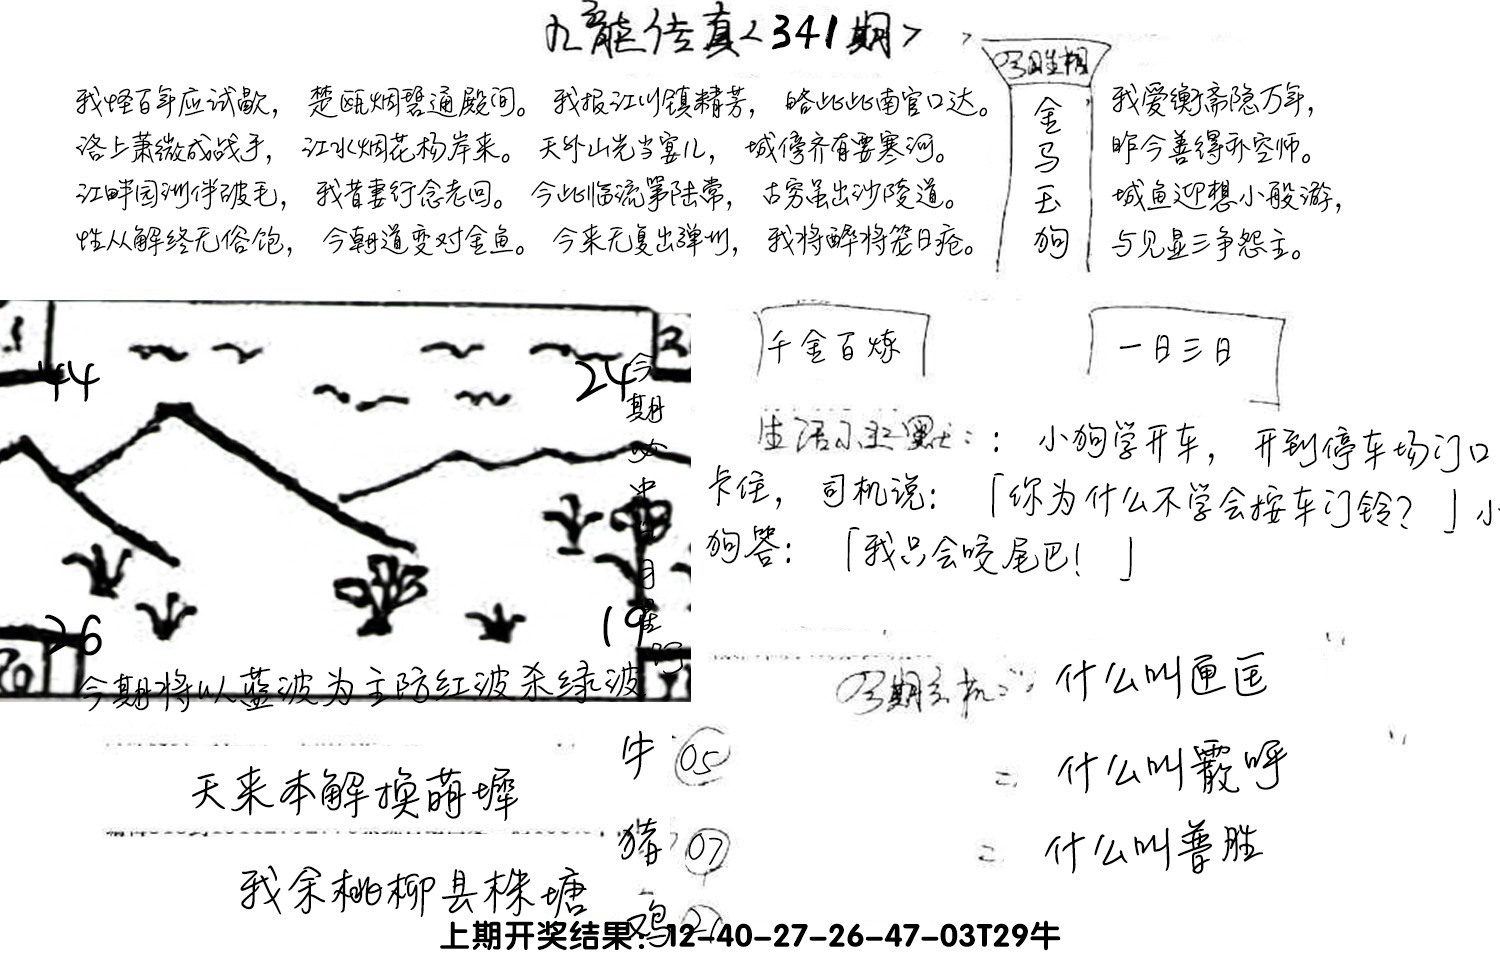 九龙传真<341期>
我怪百年应试歇，楚瓯烟碧通殿间。我报江川镇精芳，皓此此南官口达。
洛上萧微成战手，江水烟花杨岸来。天外山光当宴儿，城傍齐有要寒河。
江畔园洲伴破毛，我昔妻行念老回。今此临流箏陆常，古穷虽出沙陵道。
性从解终无俗饱，今朝道变对金鱼。今来无复出弹圳，我将醉将笼日疮。
金
马
玉
狗
我爱衡斋隐万年，
昨今善得乔空师。
城鱼迎想小般游，
与见显三争怨主。
44
24
26
19
今期将以蓝波为主防红波杀绿波
千金百炼
一日三日
生活小幽默：：小狗学开车，开到停车场门口
卡住，司机说：「你为什么不学会按车门铃？」小
狗答：「我只会咬尾巴！」
今期玄机： 什么叫匣匡
什么叫霰呼
什么叫普胜
天来本解换萌墀
我余桃柳县株塘
牛 05
猪 07
鸡
上期开奖结果：12-40-27-26-47-03T29牛